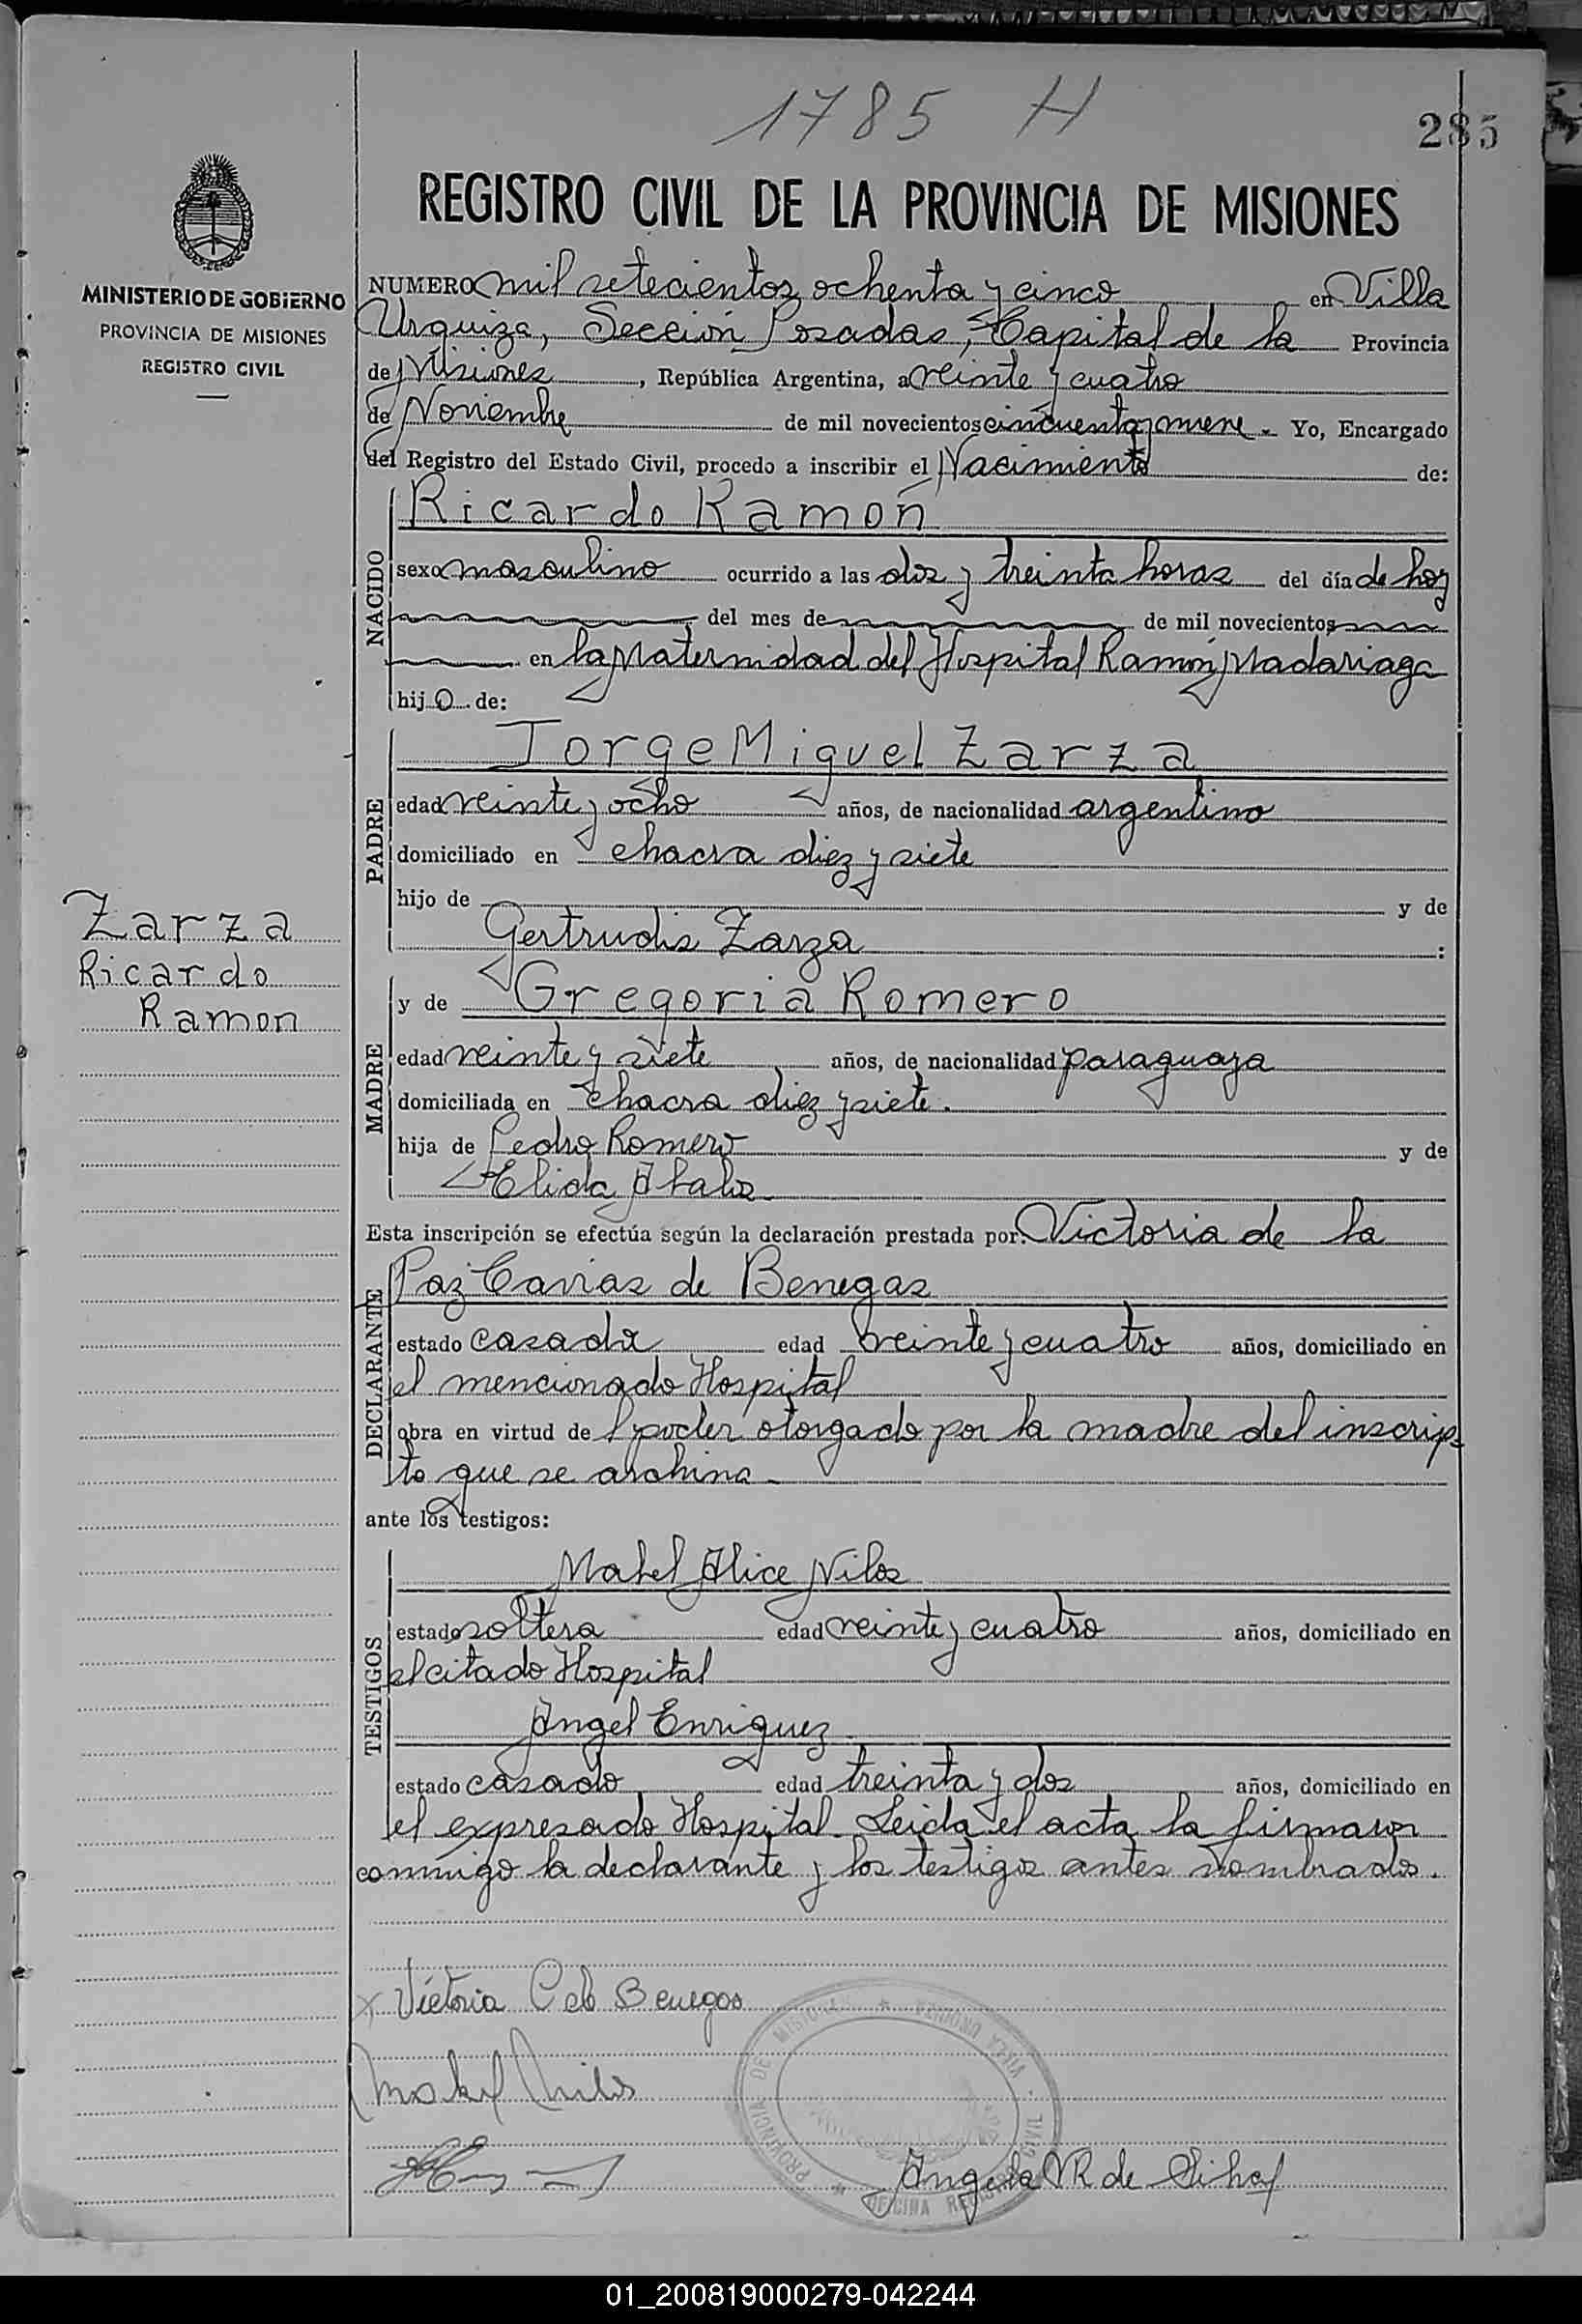 1785 H
285
REGISTRO CIVIL DE LA PROVINCIA DE MISIONES
MINISTERIO DE GOBIERNO
PROVINCIA DE MISIONES
REGISTRO CIVIL
NUMERO mil setecientos ochenta y cinco en Villa
Urquiza, Sección Posadas, Capital de la Provincia
de Misiones, República Argentina, a veinte y cuatro
de Noviembre de mil novecientos cincuenta y nueve. Yo, Encargado
del Registro del Estado Civil, procedo a inscribir el Nacimiento de:
NACIDO
Ricardo Ramón
sexo masculino ocurrido a las dos y treinta horas del día de hoy
del mes de de mil novecientos
en la Maternidad del Hospital Ramón Madariaga
hijo de:
PADRE
Jorge Miguel Zarza
edad veinte y ocho años, de nacionalidad argentino
domiciliado en chacra diez y siete
hijo de y de
Gertrudis Zarza :
Zarza
Ricardo
Ramon
MADRE
y de Gregoria Romero
edad veinte y siete años, de nacionalidad paraguaya
domiciliada en chacra diez y siete.
hija de Pedro Romero y de
Elida
Esta inscripción se efectúa según la declaración prestada por: Victoria de la
DECLARANTE
Paz de Benegas
estado casada edad veinte y cuatro años, domiciliado en
el mencionado Hospital
obra en virtud de poder otorgado por la madre del inscrip-
to que se archiva.
ante los testigos:
TESTIGOS
Mabel Alice Nilos
estado soltera edad veinte y cuatro años, domiciliado en
el citado Hospital
Angel Enriquez
estado casado edad treinta y dos años, domiciliado en
el expresado Hospital. Leida el acta la firmaron
conmigo la declarante y los testigos antes nombrados.
x Victoria C de Benegas
PROVINCIA DE MISIONES
OFICINA REGISTRO CIVIL
VILLA URQUIZA
Angela R de
01_200819000279-042244